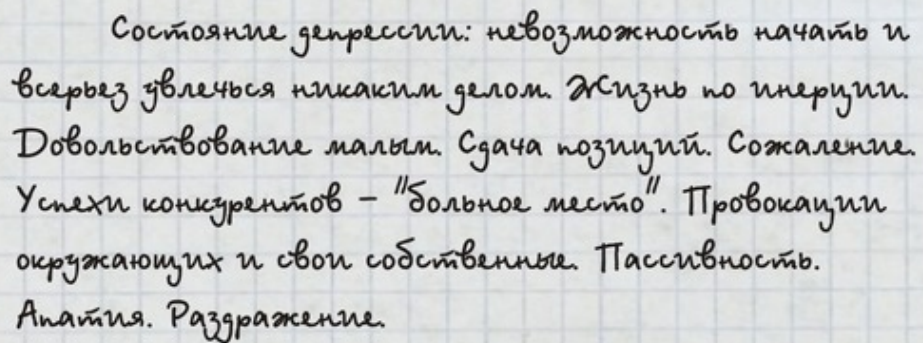 Состояние депрессии: невозможность начать и
всерьез увлечься никаким делом. Жизнь по инерции.
Довольствование малым. Сдача позиций. Сожаление.
Успехи конкурентов - "больное место". Провокации
окружающих и свои собственные. Пассивность.
Апатия. Раздражение.